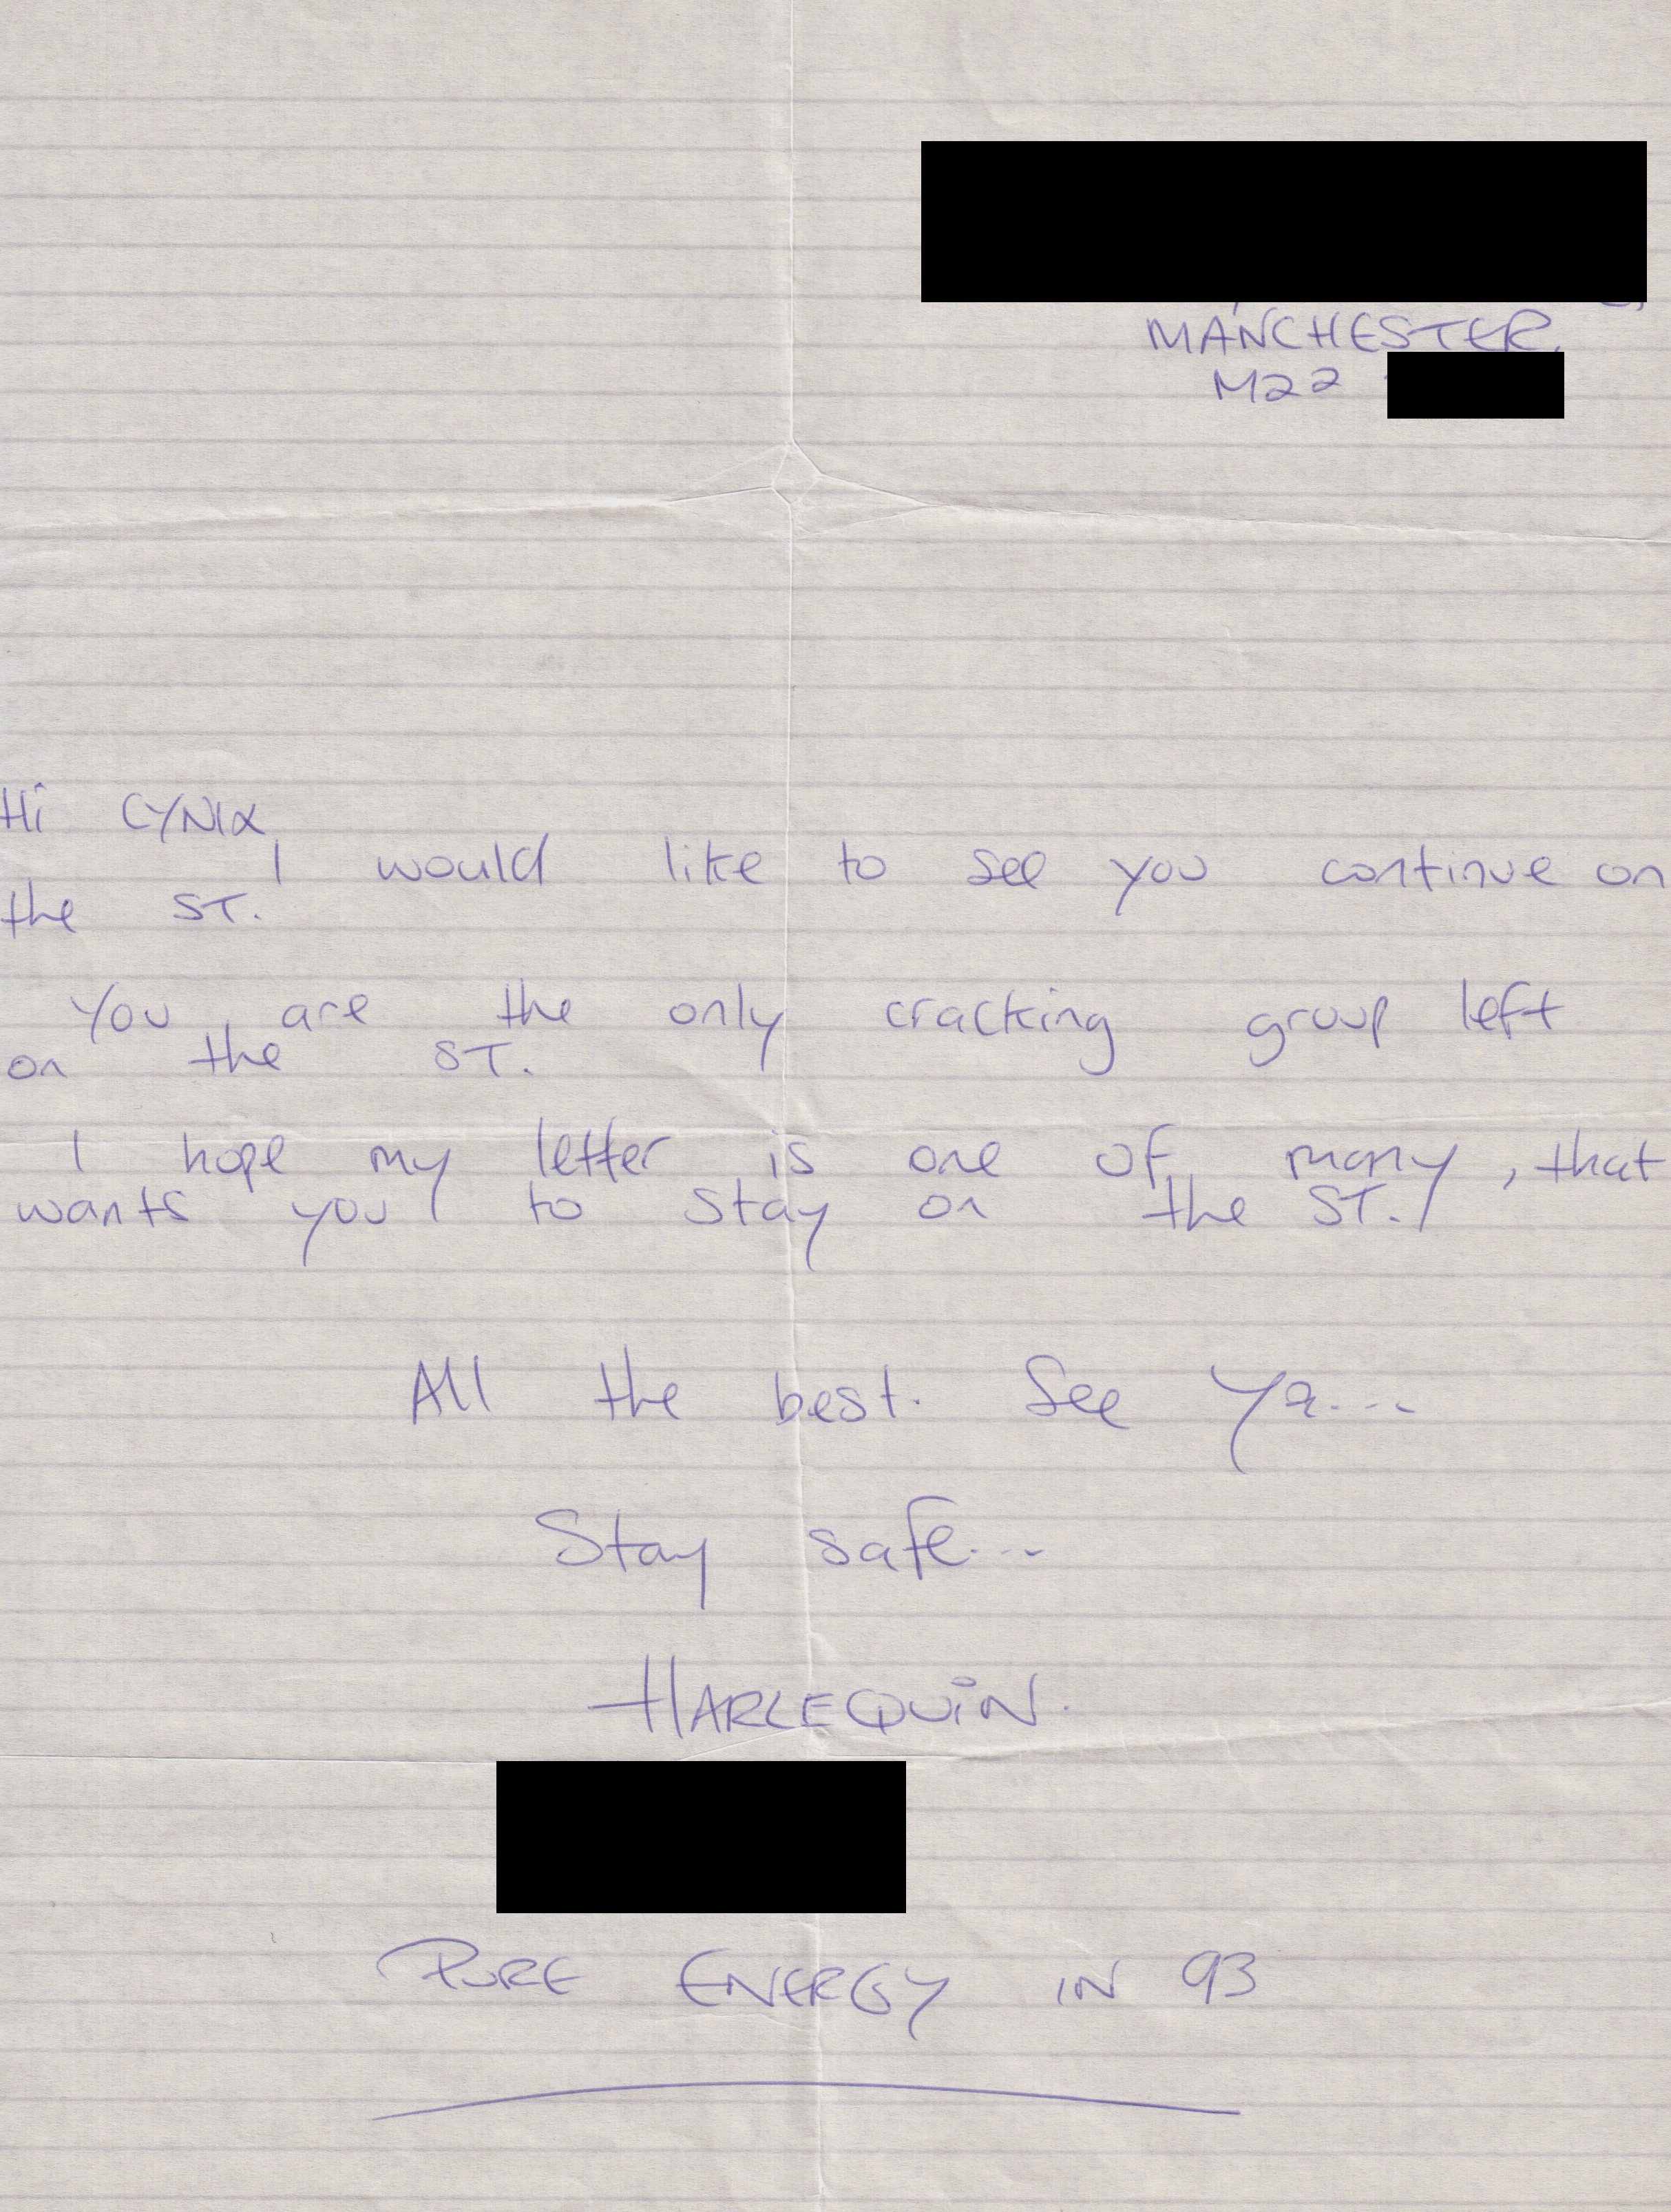 MANCHESTER,
M22
Hi CYNIX,
I would like to see you continue on
the ST.
You are the only cracking group left
on the ST.
I hope my letter is one of many, that
wants you to stay on the ST.
All the best. See Ya...
Stay safe...
HARLEQUIN.
PURE ENERGY IN 93